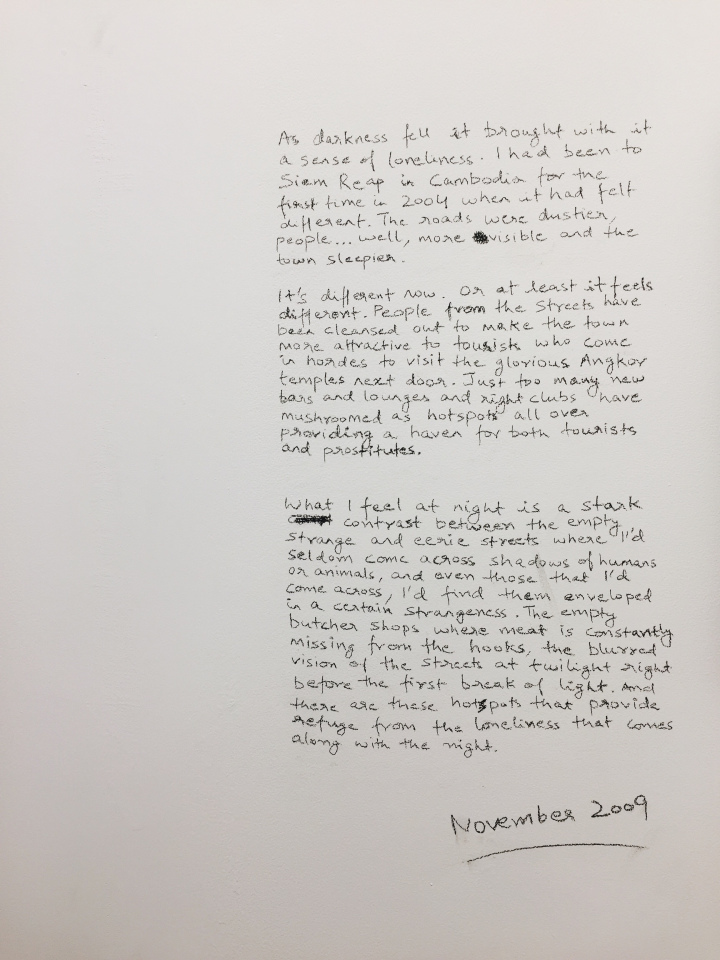 As darkness fell it brought with it
a sense of loneliness. I had been to
Siem Reap in Cambodia for the
first time in 2004 when it had felt
different. The roads were dustier,
people... well, more visible and the
town sleepier.
It's different now. Or at least it feels
different. People from the streets have
been cleansed out to make the town
more attractive to tourists who come
in hordes to visit the glorious Angkor
temples next door. Just too many new
bars and lounges and night clubs have
mushroomed as hotspots all over
providing a haven for both tourists
and prostitutes.
What I feel at night is a stark
contrast between the empty,
strange and eerie streets where I'd
seldom come across shadows of humans
or animals, and even those that I'd
come across, I'd find them enveloped
in a certain strangeness. The empty
butcher shops where meat is constantly
missing from the hooks, the blurred
vision of the streets at twilight right
before the first break of light. And
there are these hotspots that provide
refuge from the loneliness that comes
along with the night.
November 2009